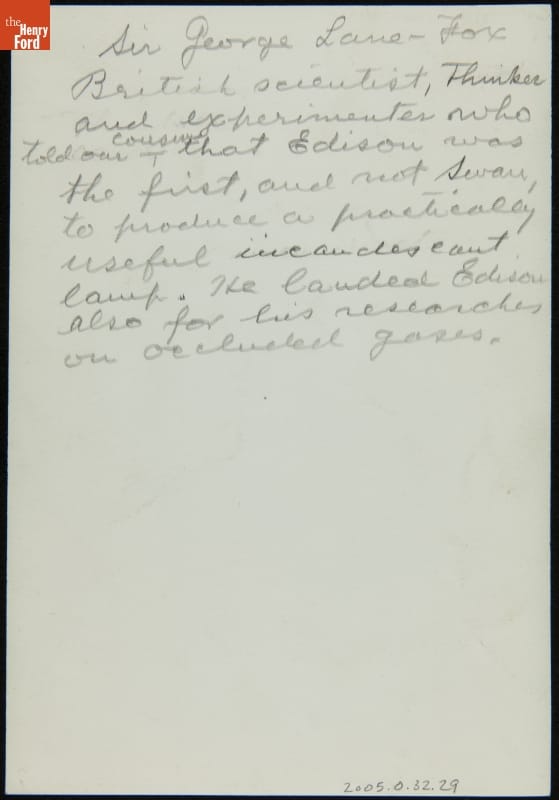 the
Henry
Ford
Sir George Lane-Fox
British scientist, Thinker
and experimenter who
cousins
told our that Edison was
the first, and not Swan,
to produce a practically
useful incandescant
lamp. He lauded Edison
also for his researches
on occluded gases.
2005.0.32.29